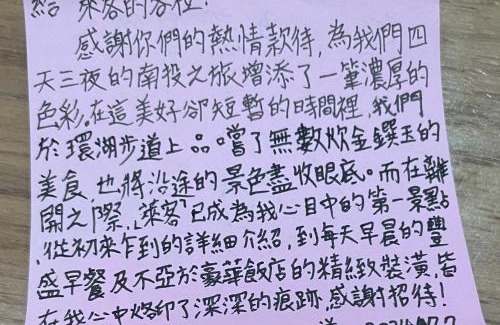 給 萊客的各位!
感謝你們的熱情款待,為我們四
天三夜的南投之旅增添了一筆濃厚的
色彩。在這美好卻短暫的時間裡,我們
於環湖步道上品嚐了無數炊金饌玉的
美食,也將沿途的景色盡收眼底。而在離
開之際,「萊客」已成為我心目中的第一景點
,從初來乍到的詳細介紹,到每天早晨的豐
盛早餐及不亞於豪華飯店的精緻裝潢,皆
在我心中烙印了深深的痕跡,感謝招待!